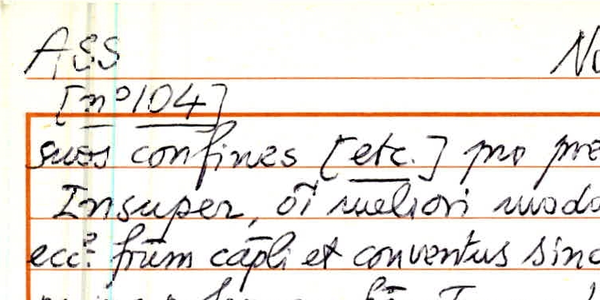 ASS
[nº 104]
suos confines [etc.] pro pre
Insuper, oĩ meliori modo
eccᵉ frũm capli et conventus sinc